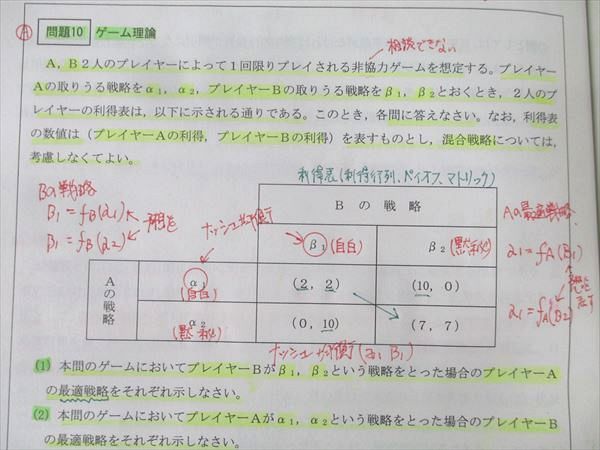 A 問題10 ゲーム理論
相談できない
A，B2人のプレイヤーによって1回限りプレイされる非協力ゲームを想定する。プレイヤー
Aの取りうる戦略をα₁，α₂，プレイヤーBの取りうる戦略をβ₁，β₂とおくとき，2人のプ
レイヤーの利得表は，以下に示される通りである。このとき，各問に答えなさい。なお，利得表
の数値は（プレイヤーAの利得，プレイヤーBの利得）を表すものとし，混合戦略については，
考慮しなくてよい。
利得表(利得行列、ペイオフ、マトリック)
Bの戦略
β₁ = fB(α₁)
β₁ = fB(α₂)
ナッシュ均衡
Bの戦略
β₁ (自白)
β₂ (黙秘)
Aの戦略
α₁ (自白)
(2, 2)
(10, 0)
α₂ (黙秘)
(0, 10)
(7, 7)
Aの最適戦略
α₁ = fA(β₁)
α₁ = fA(β₂)
ナッシュ均衡(α₁ β₁)
(1) 本問のゲームにおいてプレイヤーBがβ₁，β₂という戦略をとった場合のプレイヤーA
の最適戦略をそれぞれ示しなさい。
(2) 本問のゲームにおいてプレイヤーAがα₁，α₂という戦略をとった場合のプレイヤーB
の最適戦略をそれぞれ示しなさい。